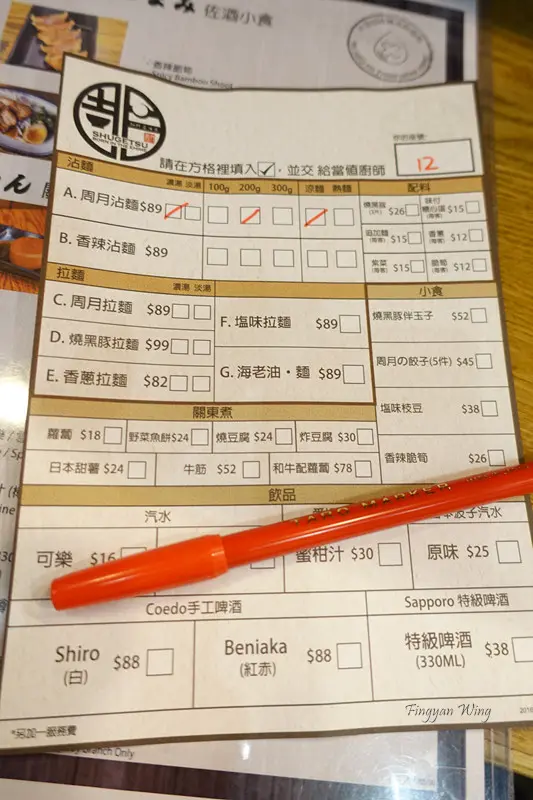 佐酒小食
香辣脆筍
Spicy Bamboo Shoot
SHUGETSU
請在方格裡填入☑，並交給當值廚師
你的座號:
12
沾麵 濃湯 淡湯 100g 200g 300g 涼麵 熱麵 配料
A. 周月沾麵 $89
燒黑豚 $26 味付糖心蛋 $15
追加麵 $15 香蔥 $12
B. 香辣沾麵 $89
紫菜 $15 脆筍 $12
拉麵 濃湯 淡湯 小食
C. 周月拉麵 $89 F. 塩味拉麵 $89 燒黑豚伴玉子 $52
D. 燒黑豚拉麵 $99 周月の餃子(5件) $45
E. 香蔥拉麵 $82 G. 海老油・麵 $89 塩味枝豆 $38
關東煮
蘿蔔 $18 野菜魚餅 $24 燒豆腐 $24 炸豆腐 $30 香辣脆筍 $26
日本甜薯 $24 牛筋 $52 和牛配蘿蔔 $78
飲品
汽水 日本波子汽水
可樂 $16 蜜柑汁 $30 原味 $25
Coedo手工啤酒 Sapporo 特級啤酒
Shiro (白) $88 Beniaka (紅赤) $88 特級啤酒 (330ML) $38
Fingyan Wing
2016
*另加一服務費
Branch Only